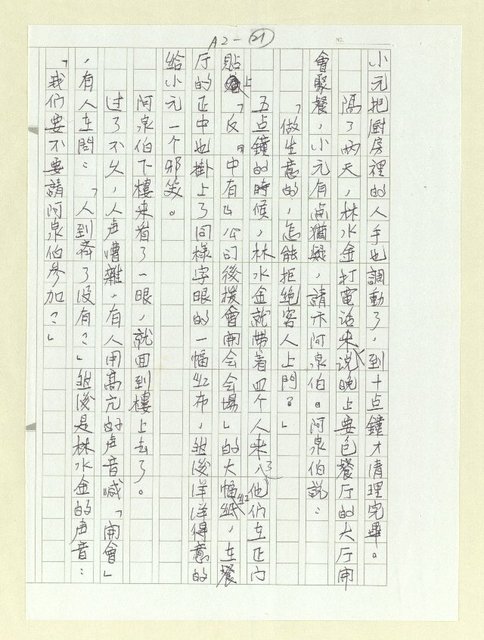 A2-21
小元把厨房裡的人手也調動了,到十点鐘才清理完畢。
隔了兩天,林水金打電話來说晚上要包餐厅的大厅開
會聚餐,小元有点猶疑,請示阿泉伯。阿泉伯説:
「做生意的,怎能拒绝客人上門?」
五点鐘的時候,林水金就帶着四个人来了,他们在正门
貼上「反 中有 公司後援會開会会場」的大幅紅紙,在餐
厅的正中也掛上了同樣字眼的一幅红布,然後洋洋得意的
給小元一个邪笑。
阿泉伯下樓来看了一眼,就回到樓上去了。
过了不久,人声嘈雜,有人用高亢的声音喊「開會」
,有人在問:「人到齊了没有?」然後是林水金的声音:
「我們要不要請阿泉伯參加?」